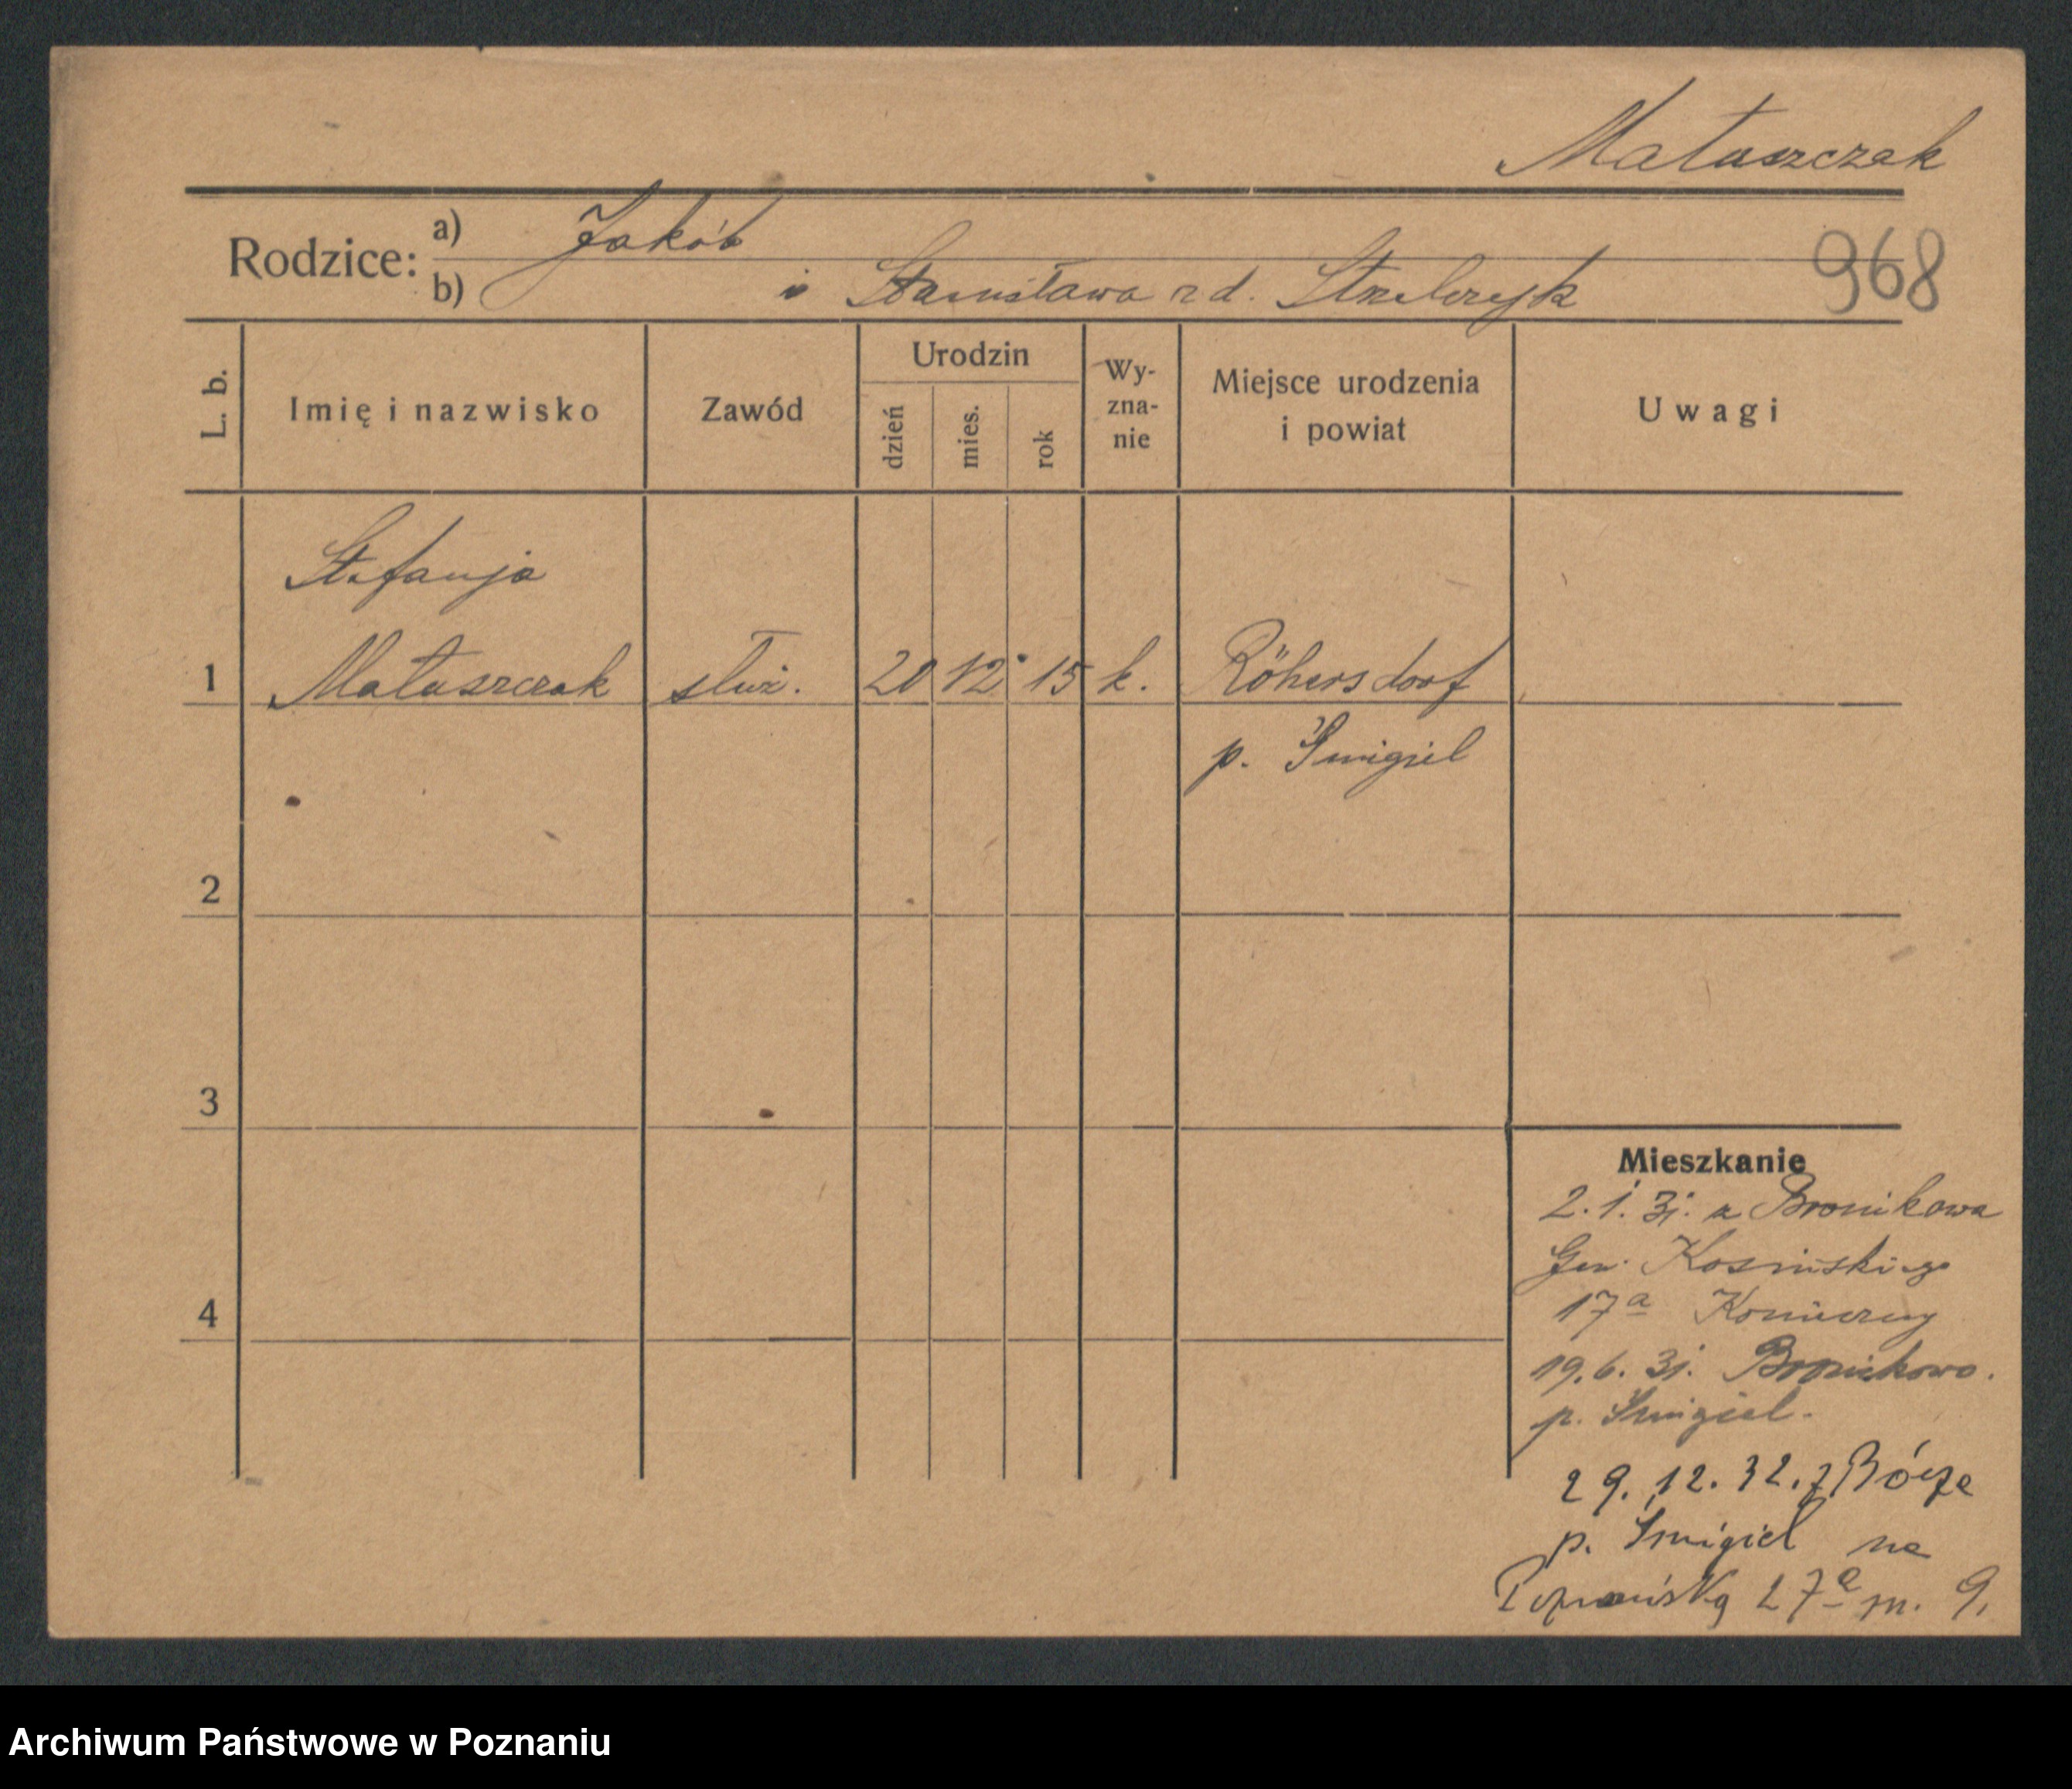 Matuszczak
Rodzice:
a) Jakób
b) i Stanisława rd. Strzelczyk
968
L. b.
Imię i nazwisko
Zawód
Urodzin
dzień
mies.
rok
Wy-
zna-
nie
Miejsce urodzenia
i powiat
Uwagi
Stefanja
1 Matuszczak służ. 20 12 15 k. Röhersdorf
p. Śmigiel
2
3
4
Mieszkanie
2.1.31. z Bronikowa
Gen. Kosińskiego
17a Konieczny
19.6.31. Bronikowo.
p. Śmigiel.
29.12.32. z
p. Śmigiel na
Poznańską 27a m. 9.
Archiwum Państwowe w Poznaniu